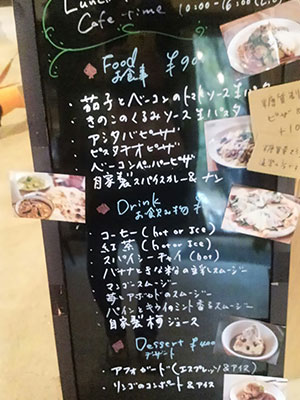 Lunch
Cafe time 10:00-16:00 (L.O
Food
お食事 ¥90
・茄子とベーコンのトマトソース生パスタ
・きのこのくるみソース生パスタ
・アンチョビピザ
・ピスタチオピザ
・ベーコンペッパーピザ
・自家製スパイスカレー&ナン
Drink
お飲み物 ¥
・コーヒー (hot or Ice)
・紅茶 (hot or Ice)
・スパイシーチャイ (hot)
・バナナときな粉の豆乳スムージー
・マンゴースムージー
・苺とアボカドのスムージー
・パインとキウイのミント香るスムージー
・自家製梅ジュース
Dessert ¥400
デザート
・アフォガード (エスプレッソ&アイス)
・リンゴのコンポート&アイス
ピザ